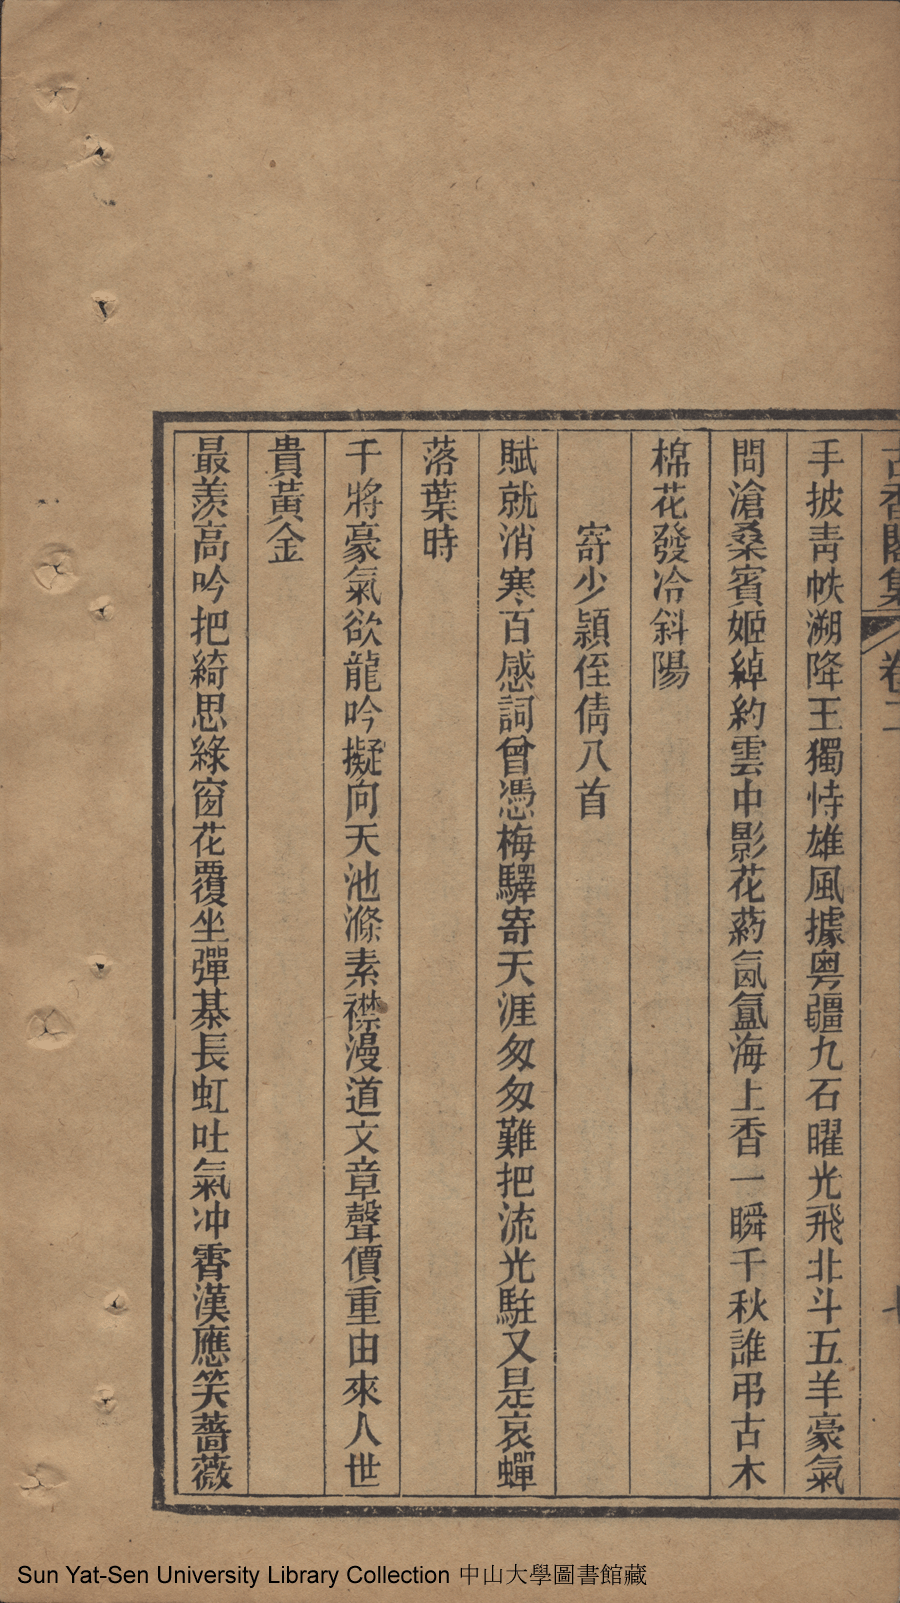 古香閣集 卷二
手披靑帙溯降王獨恃雄風據粤疆九石曜光飛北斗五羊豪氣
問滄桑賓姬綽約雲中影花葯氤氳海上香一瞬千秋誰弔古木
棉花發冷斜陽
寄少穎侄倩八首
賦就消寒百感詞曾憑梅驛寄天涯匆匆難把流光駐又是哀蟬
落葉時
千將豪氣欲龍吟擬向天池滌素襟漫道文章聲價重由來人世
貴黃金
最羨高吟把綺思綠窗花覆坐彈棊長虹吐氣冲霄漢應笑薔薇
Sun Yat-Sen University Library Collection 中山大學圖書館藏